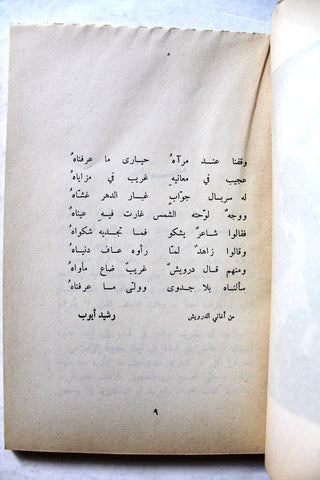 وقفنا عند مرآهُ حيارى ما عرفناهُ
عجيب في معانيهِ غريب في مزاياهُ
له سربال جوّابٍ غبار الدهر غشّاهُ
ووجهٌ لوّحته الشمس غارت فيهِ عيناهُ
فقالوا شاعرٌ يشكو فما تجديهِ شكواهُ
وقالوا زاهدٌ لمّا رأوه عاف دنياهُ
ومنهم قال درويشٌ غريبٌ ضاع مأواهُ
سألناه بلا جدوى وولّى ما عرفناهُ
من أغاني الدرويش رشيد أيوب
٩